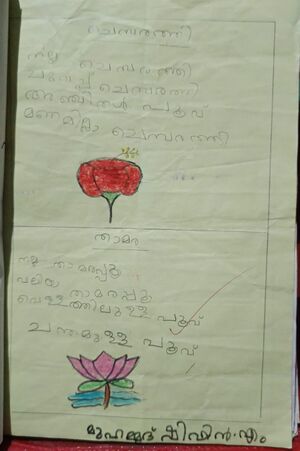 ചെമ്പരത്തി
നല്ല ചെമ്പരത്തി
ചുവപ്പ് ചെമ്പരത്തി
അഞ്ചിതൾ പൂവ്
മണമില്ലാ ചെമ്പരത്തി
താമര
നല്ല താമരപ്പൂ
വലിയ താമരപ്പൂ
വെള്ളത്തിലുള്ള പൂവ്
ചന്തമുള്ള പൂവ്
മുഹമ്മദ് ഷിഫിൻ.എം